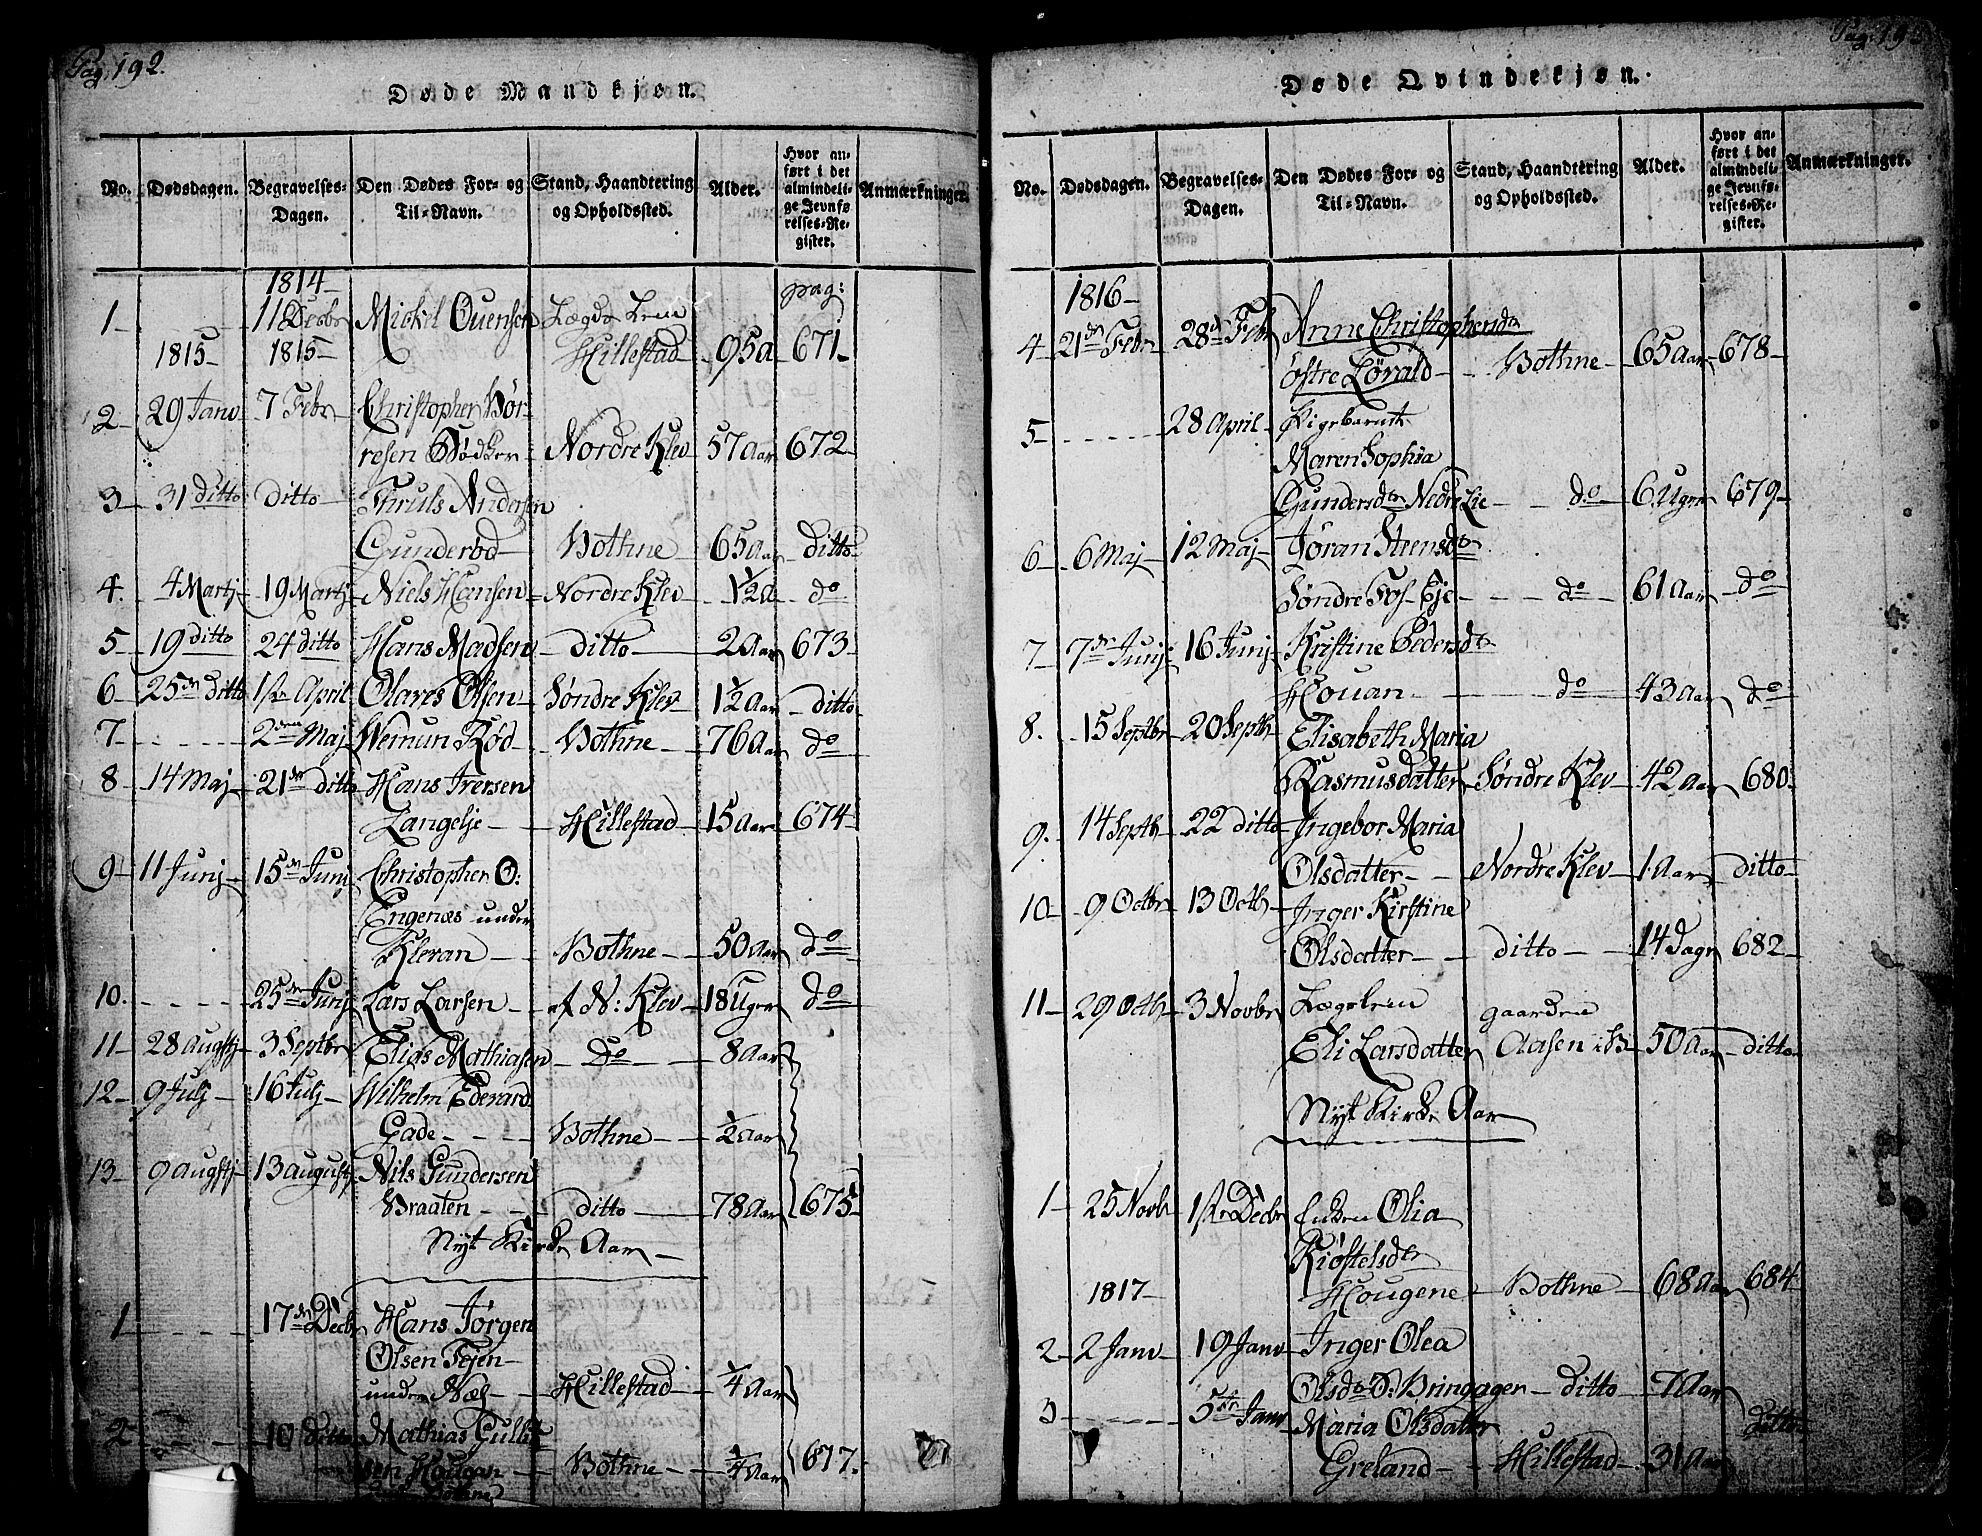 Pag. 192.
Døde Mandkjøn.
No. Dødsdagen. Begravelses-Dagen. Den Dødes For- og Til-Navn. Stand, Haandtering og Opholdssted. Alder. Hvor anført i det almindelige Jevnførelses-Register. Anmærkninger.
1814
pag:
1 - - - 11 Decbr Mickel Ouensen Lægds Lem
1815 1815 Hillestad 95 a 671
2 29 Janv 7 Febr Christopher Bør-
resen Bødker Nordre Klev 57 Aar 672
3 31 ditto ditto Thruls Andersen
Gunderød Bothne 65 Aar ditto
4. 4 Martj 19 Martj Niels Hansen Nordre Klev 1½ a do
5 19 ditto 24 ditto Hans Madsen ditto 2 Aar 673
6 25de ditto 1ste April Olaves Olsen Søndre Klev 1½ Aar ditto
7 - - - 2den Maj Wemun Rød Bothne 76 Aar do
8 14 Maj 21de ditto Hans Iversen
Langelje Hillestad 15 Aar 674
9 11 Junj 15de Junj Christopher O:
Engenæs under
Kleran Bothne 50 Aar do
10. - - - 25de Junj Lars Larsen af N: Klev 18 Uger do
11 28 Augstj 3 Septbr Elias Mathiasen Do 8 Aar
12 9 Julj 16 Julj Wilhelm Ederard
Gade Bothne ½ Aar
13 9 Augstj 13 Augustj Nils Gundersen
Braaten ditto 78 Aar 675
Nyt Kirke Aar
1 - - - 17de Decbr Hans Jørgen
Olsen Tejen
under Næs Hillestad ¼ Aar
2 - - - 10 ditto Mathias Gulli
sen Hougan Bothne ¾ Aar 677.
Døde Qvindekjøn.
No. Dødsdagen. Begravelses-Dagen. Den Dødes For- og Til-Navn. Stand, Haandtering og Opholdssted. Alder. Hvor anført i det almindelige Jevnførelses-Register. Anmærkninger.
1816
4 21de Febr 28de Febr Anne Christophersdtr
østre Løvald Bothne 65 Aar 678
5 - - - 28 April Pigebarnet
Maren Sophia
Gundersdtr Nedre Lie do 6 Uger 679
6 6 Maj 12 Maj Jøran Steensdtr
Søndre Fos Eje do 61 Aar do
7 7de Junj 16 Junj Kristine Pedersdtr
Houan do 43 Aar do
8. 15 Septbr 20 Septbr Elisabeth Maria
Rasmusdatter Søndre Klev 42 Aar 680
9. 14 Septbr 22 ditto Ingebor Maria
Olsdatter Nordre Klev 1 Aar ditto
10 9 Octbr 13 Octbr Inger Kirstine
Olsdatter ditto 14 Dage 682
11 29 Octbr 3 Novbr Lægslem gaarden
Eli Larsdatter Aasen i B 50 Aar ditto
Nyt Kirke Aar
1 25 Novbr 1ste Decbr Enken Olia
Kiøstelsdtr
1817 Hougene Bothne 68 Aar 684
2 2 Janv 19 Janv Inger Olea
Olsdtr O: Bringager ditto 7 Aar
3 - - - 5te Janv Maria Olsdatter ditto
Greland Hillestad 31 Aar